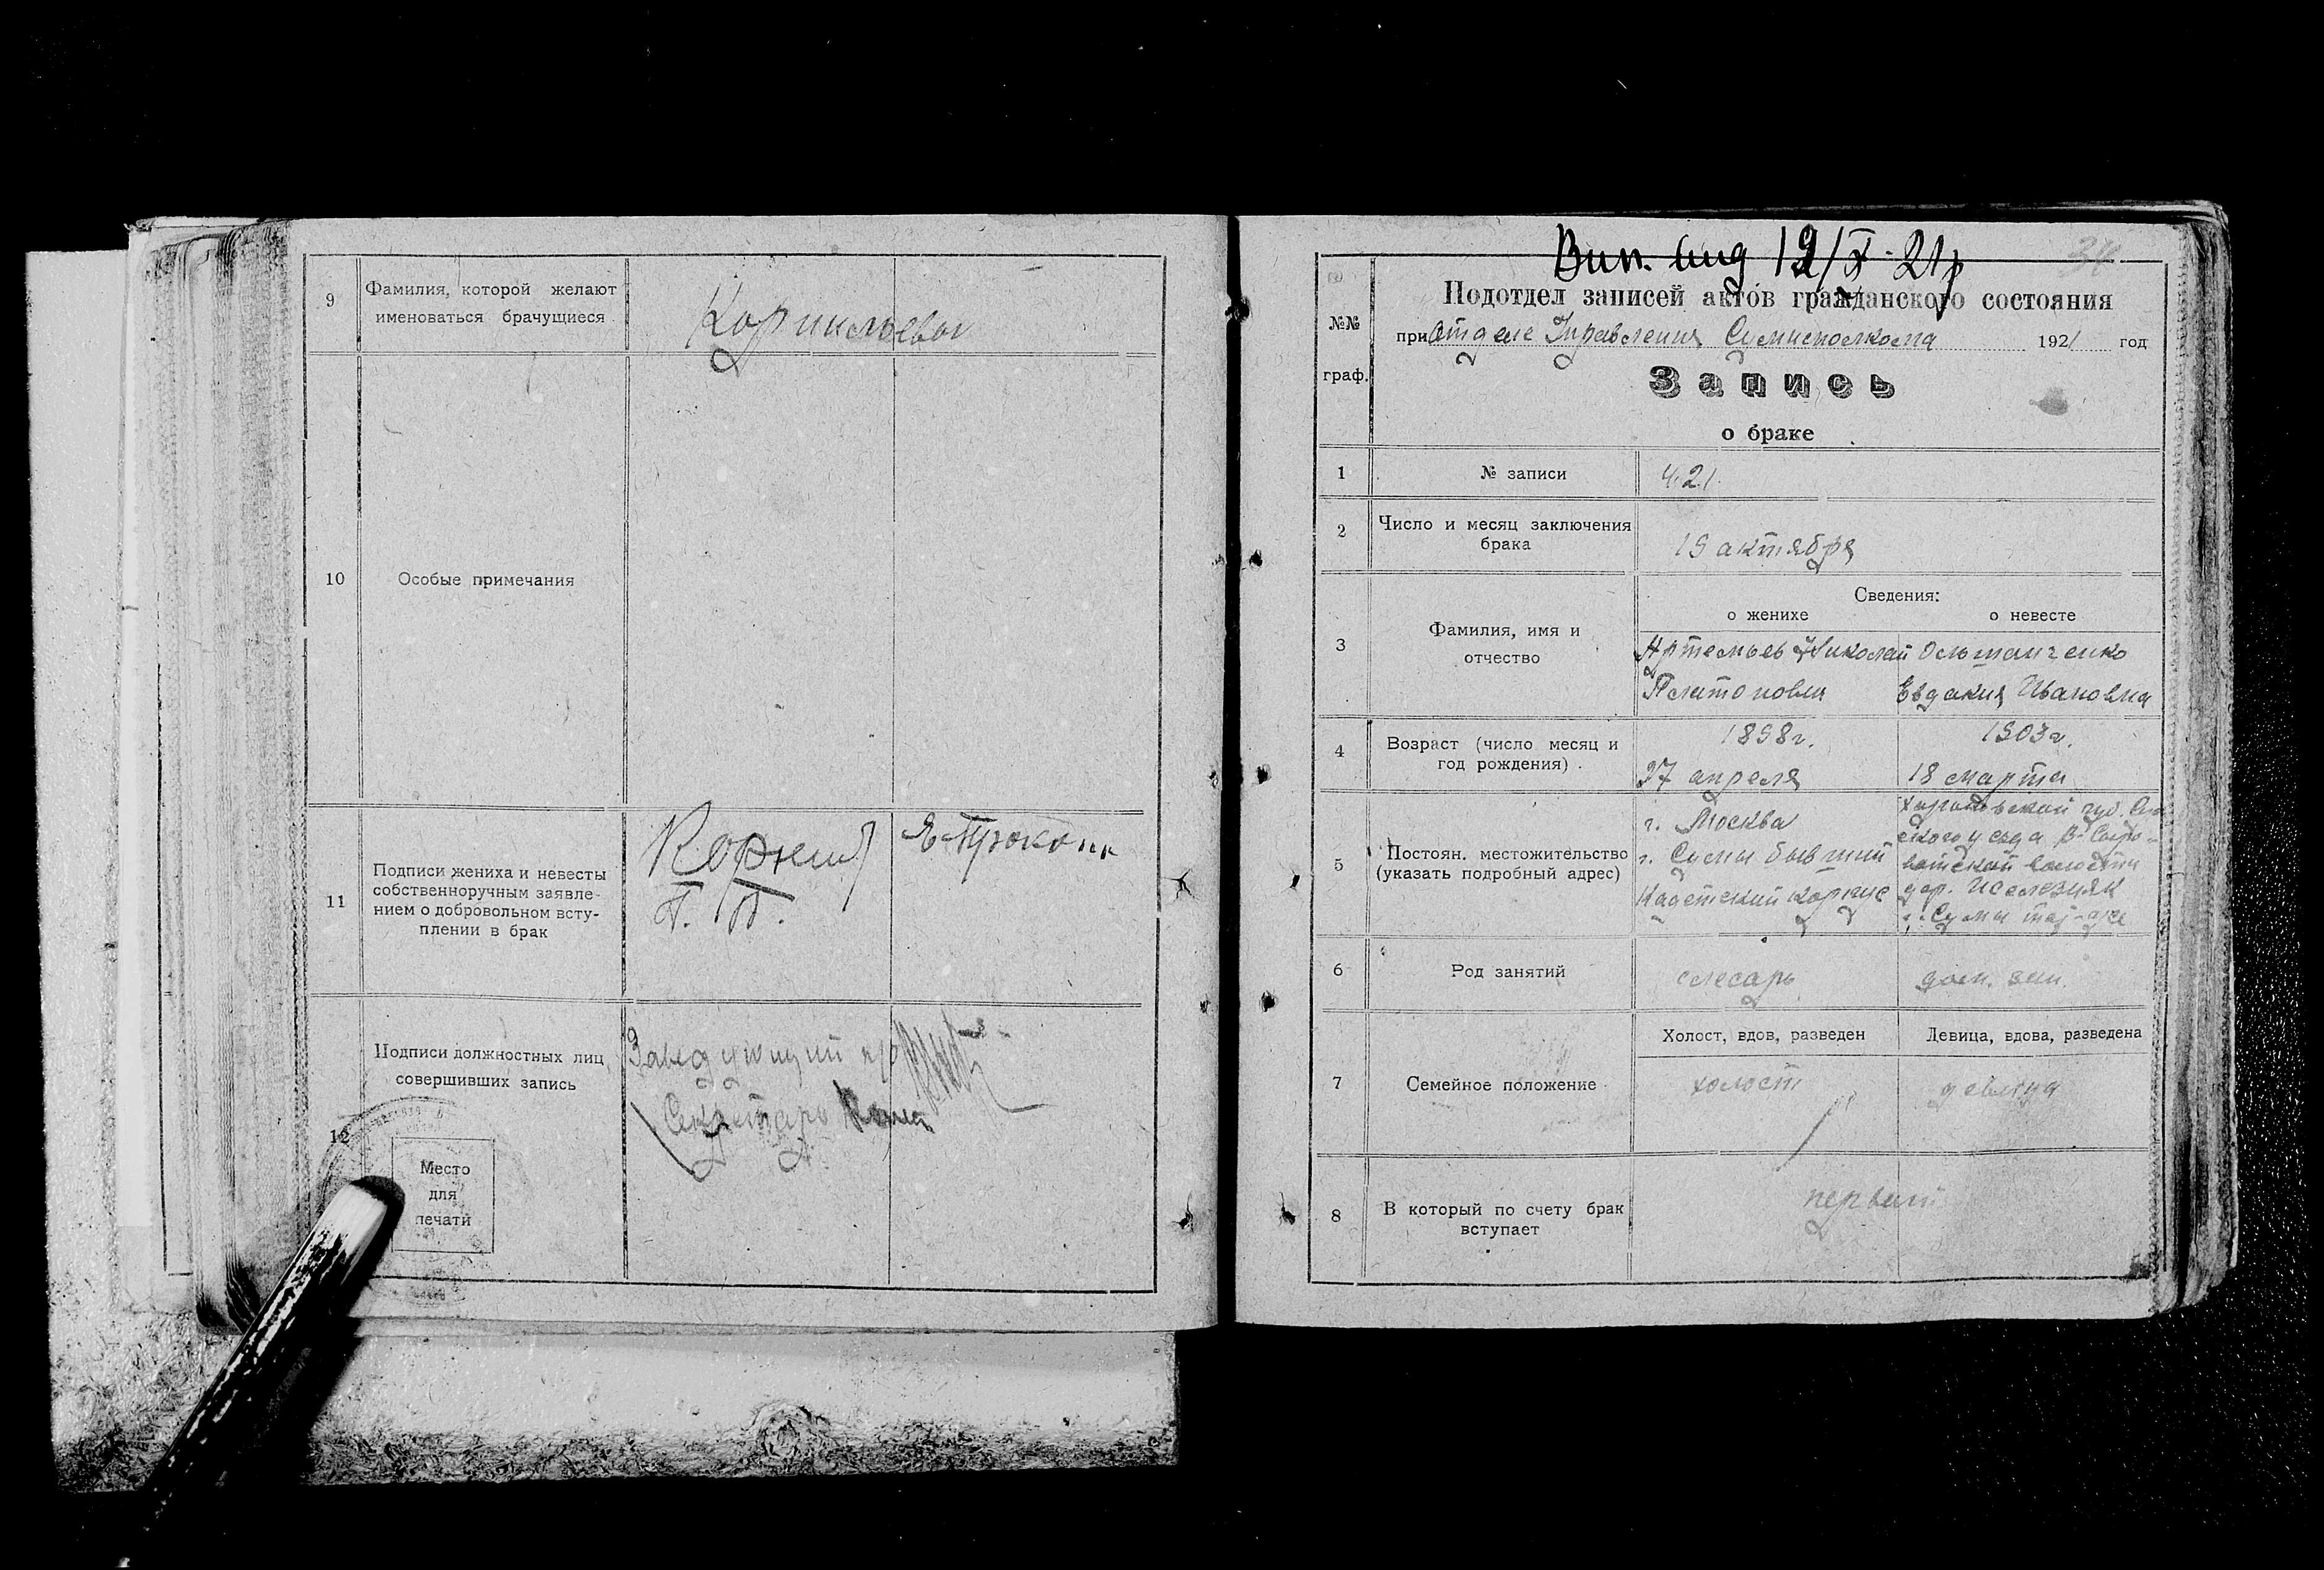 9
Фамилия, которой желают
именоваться брачущиеся
Корнильевы
10
Особые примечания
11
Подписи жениха и невесты
собственноручным заявле-
нием о добровольном всту-
плении в брак
Корнил
П. П.
Е Прокоп
12
Подписи должностных лиц,
совершивших запись
Заведующий п/о
Секретарь
Место
для
печати
Вип. 19/X 21р
34
№№
граф.
Подотдел записей актов гражданского состояния
при Отделе Управления Сумисполкома 1921 год
Запись
о браке
1
№ записи
421.
2
Число и месяц заключения
брака
19 актября
Сведения:
о женихе
о невесте
3
Фамилия, имя и
отчество
Артемьев Николай
Платонови
Ольшанченко
Евдакия Ивановна
4
Возраст (число месяц и
год рождения).
1898г.
27 апреля
1903г.
18 марта
5
Постоян. местожительство
(указать подробный адрес)
г. Москва
г. Сумы бывший
Кадетский корпус
Харьковской губ. Сум
ского уезда В-Сыро-
ватской волости
дер. Железняк
г. Сумы там-же
6
Род занятий
слесарь
дом. зан.
7
Семейное положение
Холост, вдов, разведен
Девица, вдова, разведена
холост
девица
8
В который по счету брак
вступает
первый